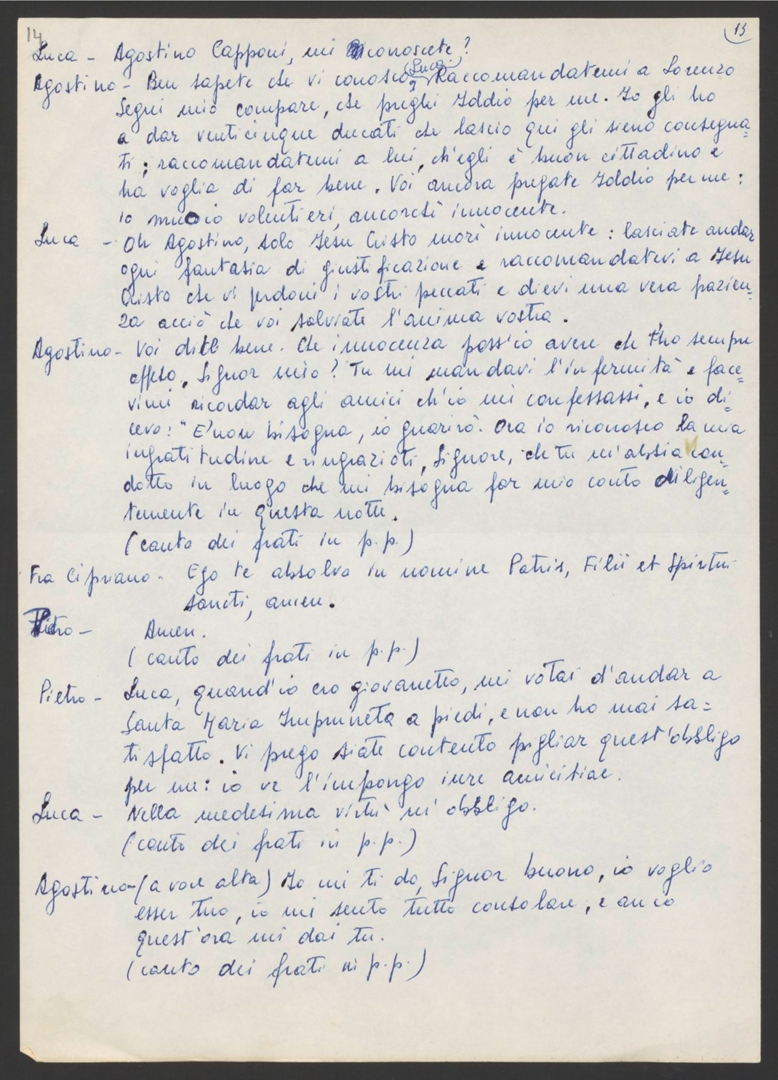 14
13
Luca - Agostino Capponi, mi riconoscete?
Agostino - Ben sapete che vi conosco, (Luca). Raccomandatemi a Lorenzo
Segni mio compare, che preghi Iddio per me. Io gli ho
a dar venticinque ducati che lascio qui gli sieno consegna=
ti; raccomandatemi a lui, ch'egli è buon cittadino e
ha voglia di far bene. Voi ancora pregate Iddio per me:
io muoio volentieri, ancorché innocente.
Luca - Oh Agostino, solo Jesu Cristo morì innocente: lasciate andar
ogni fantasia di giustificazione e raccomandatevi a Jesu
Cristo che vi perdoni i vostri peccati e dievi una vera pazien=
za acciò che voi salviate l'anima vostra.
Agostino - Voi dite bene. Che innocenza poss'io avere che t'ho sempre
offeso, Signor mio? Tu mi mandavi l'infermità e face=
vimi ricordar agli amici ch'io mi confessassi, e io di=
cevo: "E' non bisogna, io guarirò. Ora io riconosco la mia
ingratitudine e ringrazioti, Signore, che tu m'abbia con=
dotto in luogo che mi bisogna far mio conto diligen=
temente in questa notte.
(canto dei frati in p.p.)
Fra Cipriano - Ego te absolvo in nomine Patris, Filii et Spiritui
Sancti, amen.
Pietro - Amen.
(canto dei frati in p.p.)
Pietro - Luca, quand'io ero giovanetto, mi votai d'andar a
Santa Maria Impruneta a piedi, e non ho mai sa=
tisfatto. Vi prego siate contento pigliar quest'obbligo
per me: io ve l'impongo iure amicitiae.
Luca - Nella medesima virtù m'obbligo.
(canto dei frati in p.p.)
Agostino - (a voce alta) Io mi ti do, Signor buono, io voglio
esser tuo, io mi sento tutto consolare, e anco
quest'ora mi dai tu.
(canto dei frati in p.p.)